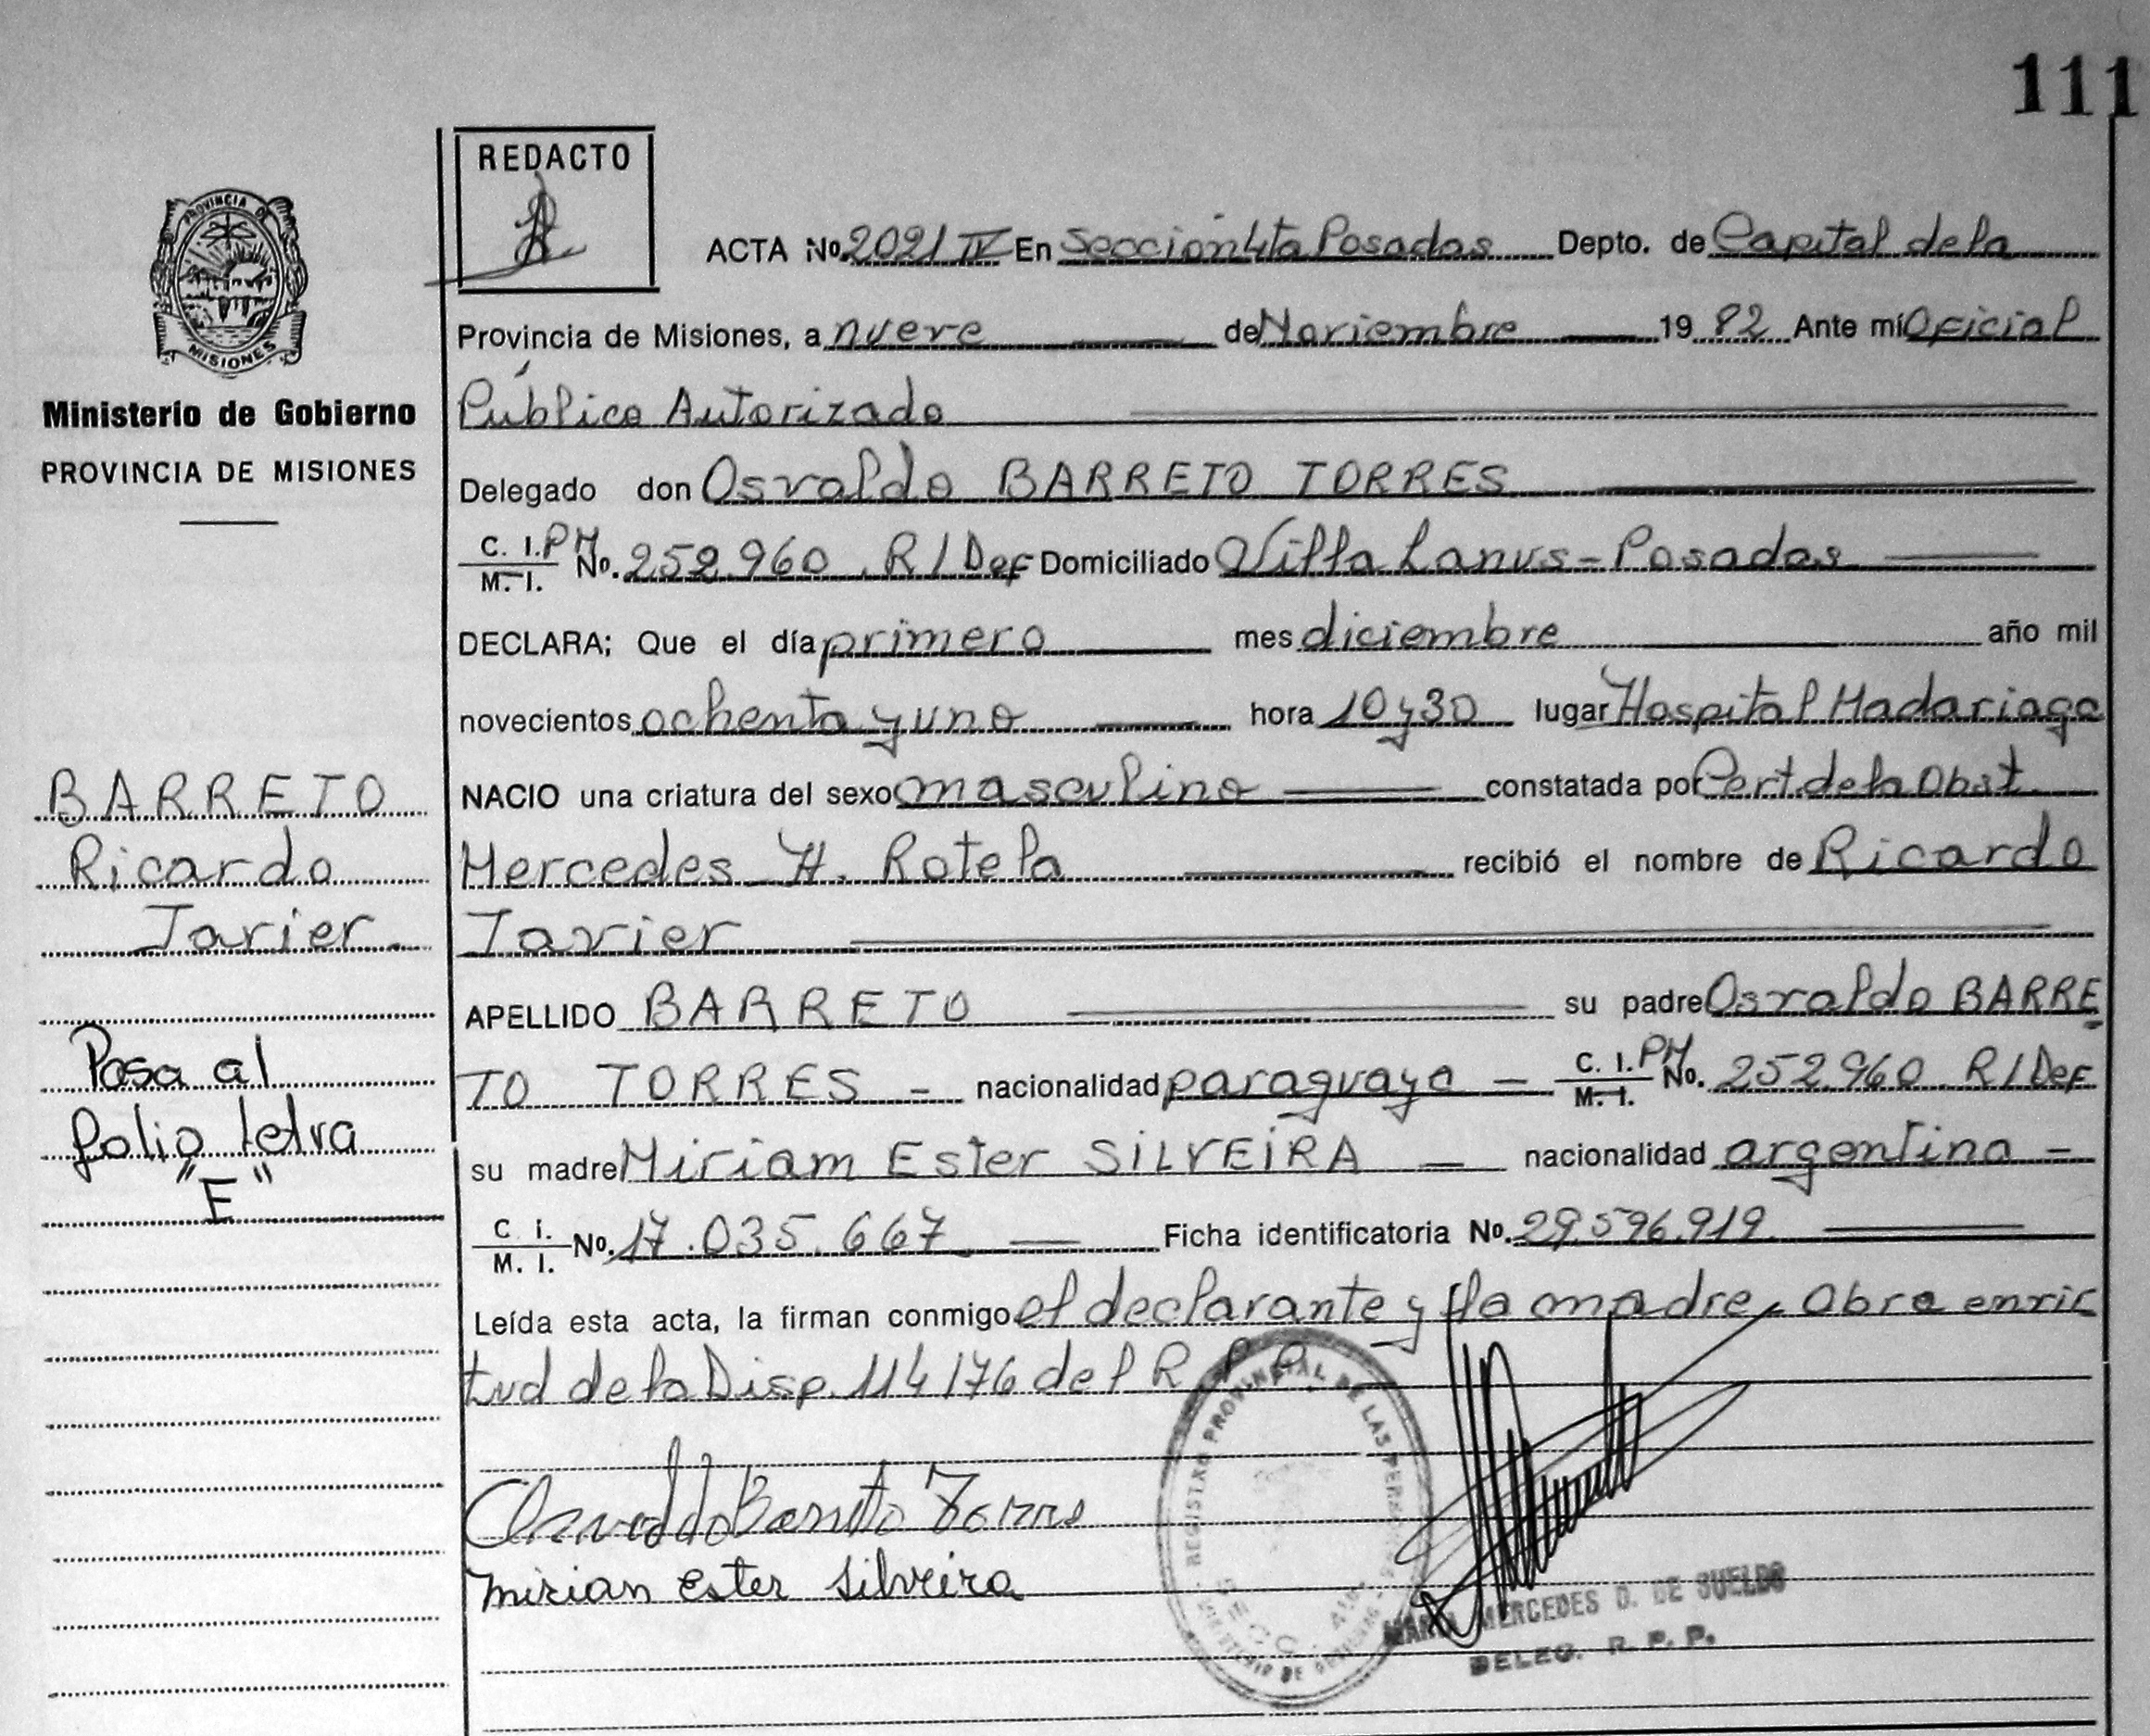 111
REDACTO
PROVINCIA DE
MISIONES
Ministerio de Gobierno
PROVINCIA DE MISIONES
ACTA No. 2021 IV En Seccion 4ta Posadas Depto. de Capital de la
Provincia de Misiones, a nueve de Noviembre 19 82 Ante mí Oficial
Público Autorizado
Delegado don Osvaldo BARRETO TORRES
C. I. PY M. I. No. 252.960 R/Def Domiciliado Villa Lanus - Posadas
DECLARA; Que el día primero mes diciembre año mil
novecientos ochenta y uno hora 10 y 30 lugar Hospital Madariaga
NACIO una criatura del sexo masculino constatada por Cert. de la Obst.
Mercedes H. Rotela recibió el nombre de Ricardo
Javier
APELLIDO BARRETO su padre Osvaldo BARRE
TO TORRES - nacionalidad paraguaya - C. I. PY M. I. No. 252.960 R/Def
su madre Miriam Ester SILVEIRA - nacionalidad argentina -
C. I. M. I. No. 17.035.667 Ficha identificatoria No. 29.596.919
Leída esta acta, la firman conmigo el declarante y la madre, Obra en vir
tud de la Disp. 114/76 del R. P. P.
BARRETO
Ricardo
Javier.
Pasa al
folio letra
"F"
Osvaldo Barreto Torres
Mirian Ester Silveira
REGISTRO PROVINCIAL DE LAS PERSONAS
MARIA MERCEDES D. DE SUELDO
DELEG. R. P. P.